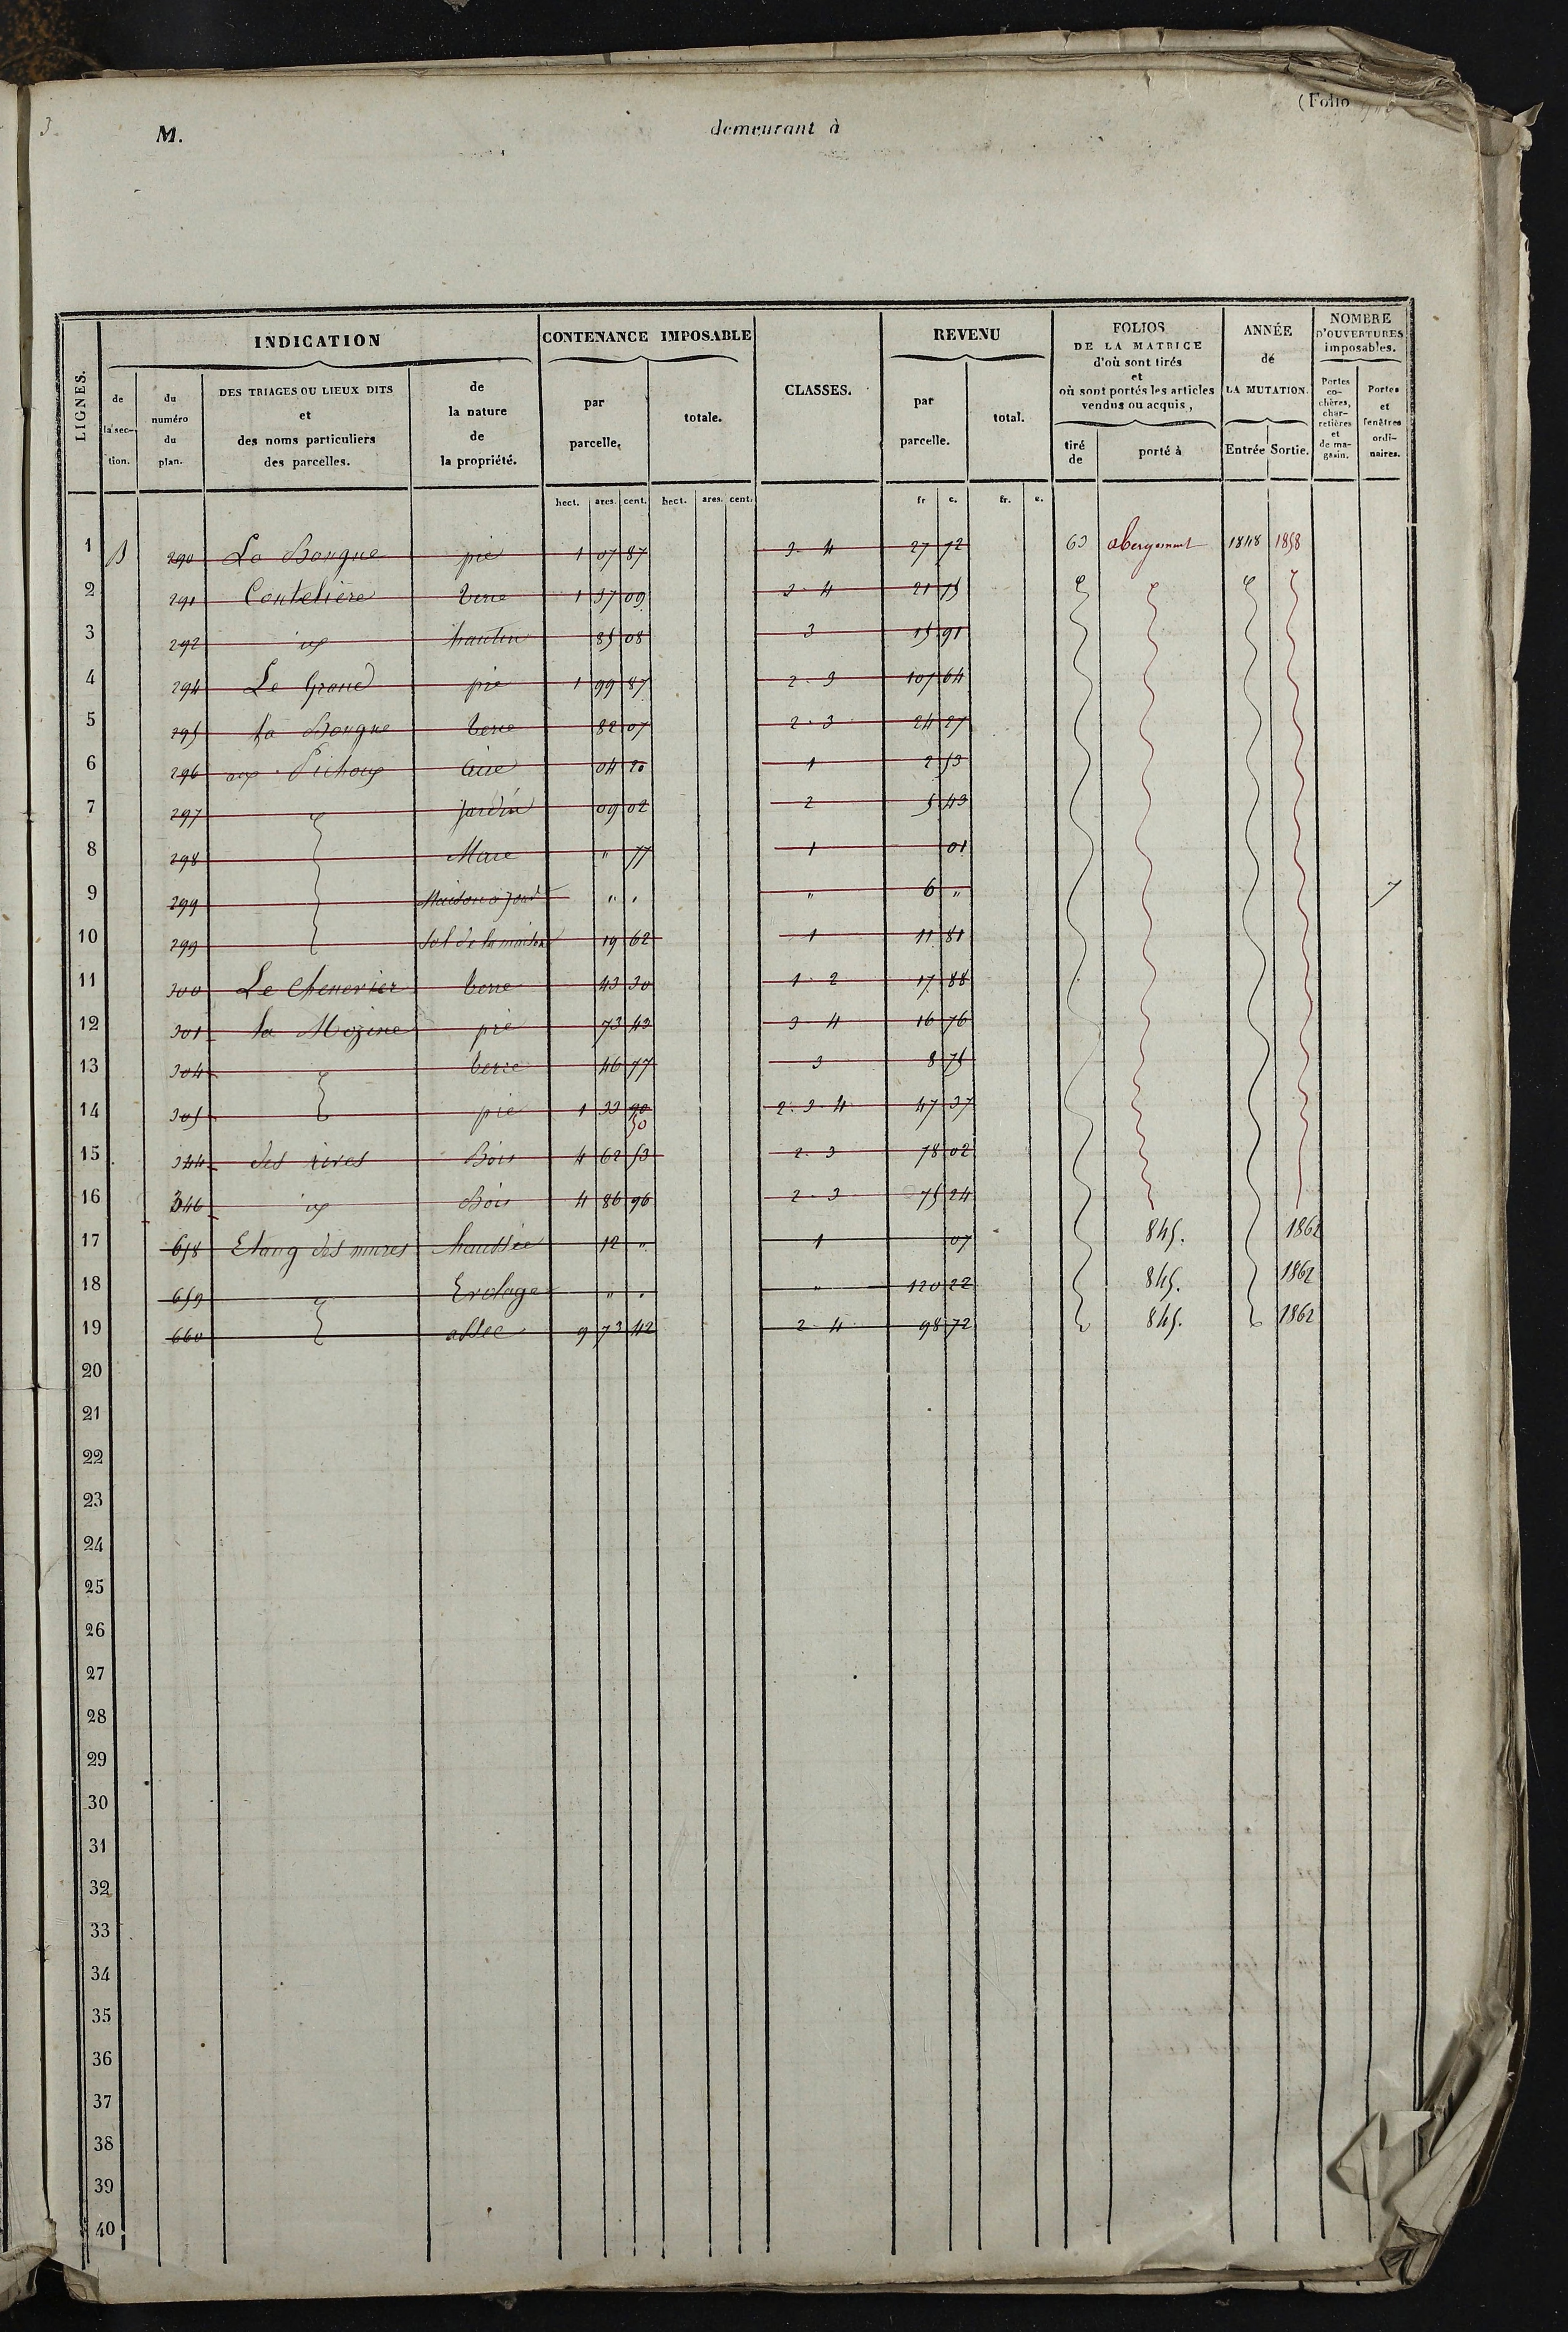 (Folio
3
M. demeurant à
LIGNES. INDICATION CONTENANCE IMPOSABLE CLASSES. REVENU FOLIOS DE LA MATRICE d'où sont tirés et où sont portés les articles vendus ou acquis, ANNÉE de LA MUTATION. NOMBRE D'OUVERTURES imposables.
de la section. du numéro du plan. DES TRIAGES OU LIEUX DITS et des noms particuliers des parcelles. de la nature de la propriété. par parcelle. totale. par parcelle. total. tiré de porté à Entrée Sortie. Portes co-chères, char-retières et de ma-gasin. Portes et fenêtres ordi-naires.
hect. ares. cent. hect. ares. cent. fr c. fr. c.
1 B 290 La Bougue pré 1 07 87 3-4 27 72 63 abergement 1848 1858
2 291 Coutelière terre 1 37 09 3-4 21 75
3 292 id hautin 85 08 3 15 91
4 294 Le Grand pré 1 99 87 2-3 107 64
5 295 la Bougue terre 82 07 2-3 24 27
6 296 aux Pichoux Aire 04 20 1 2 53
7 297 Jardin 09 02 2 5 43
8 298 Mare " 77 1 01
9 299 Maison à four " " " 6 " 7
10 299 Sol de la maison 19 62 1 11 81
11 300 Le Chenevier terre 43 30 1-2 17 88
12 301 la Mozine pré 73 43 3-4 16 76
13 304 terre 46 77 3 8 75
14 305 pré 1 33 90 2-3-4 47 37
50
15 344 des rives Bois 4 62 53 2-3 78 02
16 346 id Bois 4 86 96 2-3 75 24
17 658 Etang des mures chaussée 12 " 1 07 845. 1862
18 659 Evolage " " " 120 22 845. 1862
19 660 assec 9 73 42 2-4 98 72 845. 1862
20
21
22
23
24
25
26
27
28
29
30
31
32
33
34
35
36
37
38
39
40